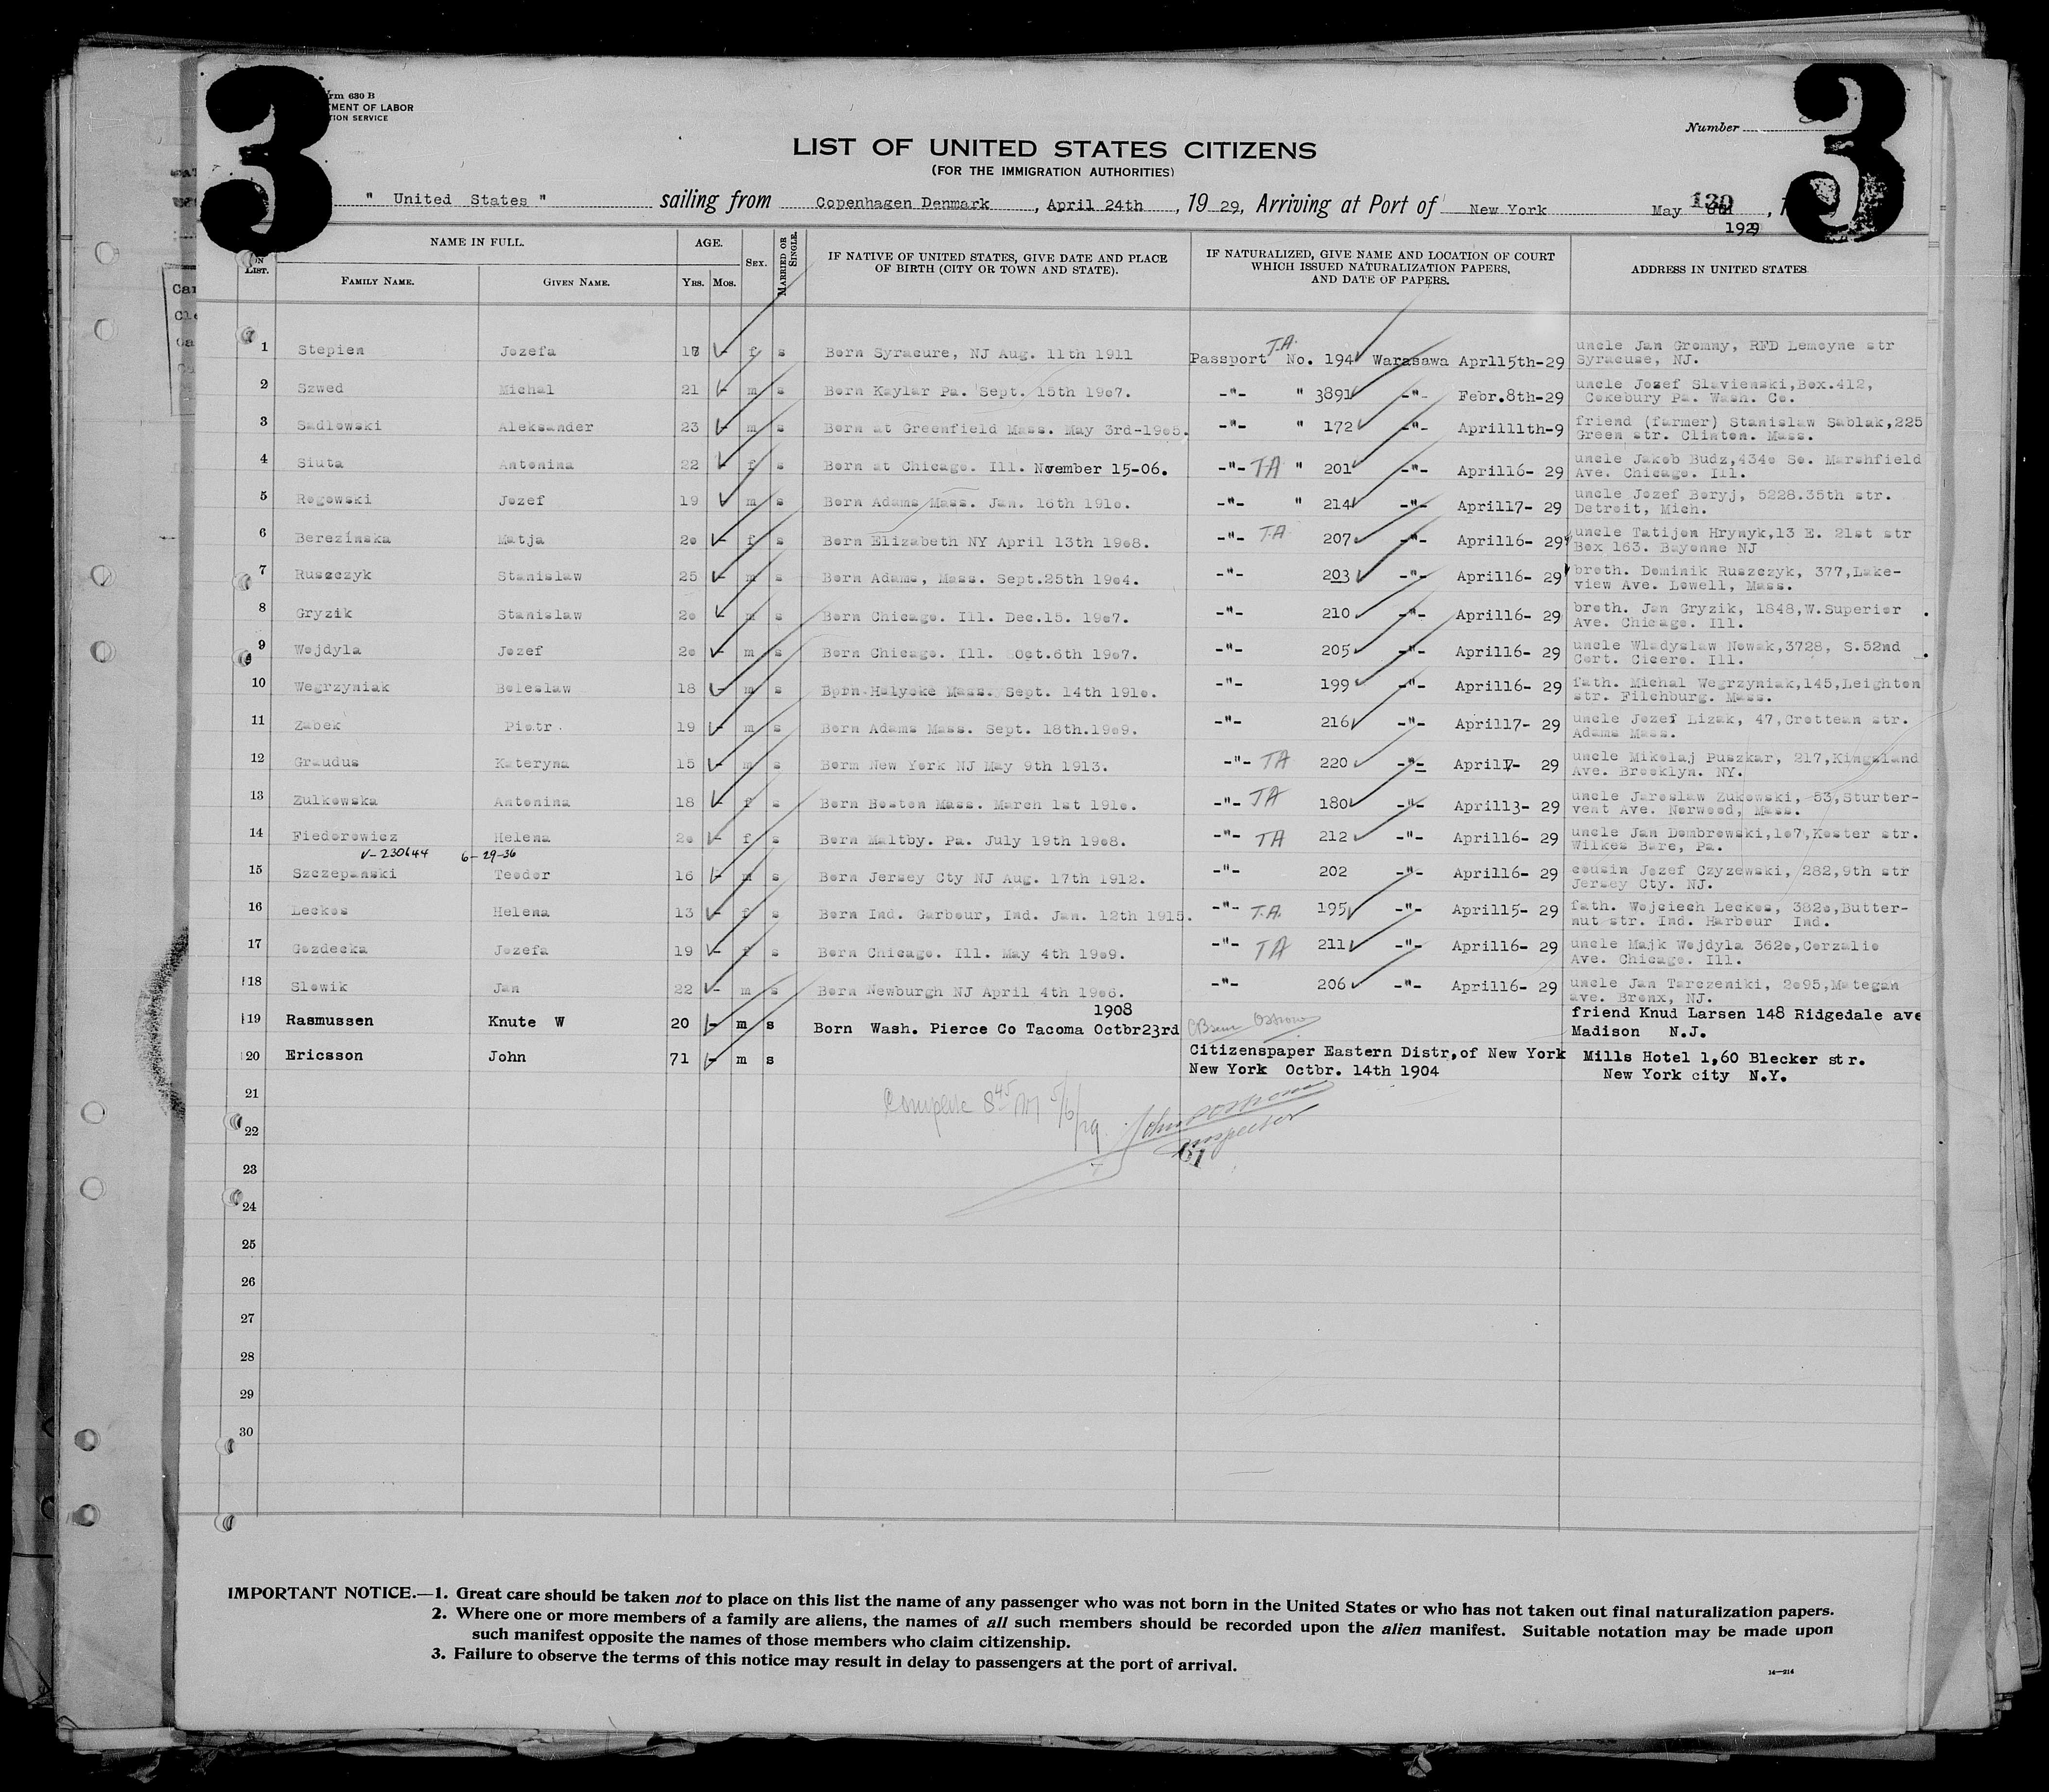 3
3
rm 630 B
MENT OF LABOR
TION SERVICE
Number
LIST OF UNITED STATES CITIZENS
(FOR THE IMMIGRATION AUTHORITIES)
" United States " sailing from Copenhagen Denmark , April 24th , 19 29, Arriving at Port of New York May 130
1929
LIST.
NAME IN FULL.
FAMILY NAME.
GIVEN NAME.
AGE.
YRS. MOS.
SEX.
MARRIED OR SINGLE.
IF NATIVE OF UNITED STATES, GIVE DATE AND PLACE
OF BIRTH (CITY OR TOWN AND STATE).
IF NATURALIZED, GIVE NAME AND LOCATION OF COURT
WHICH ISSUED NATURALIZATION PAPERS,
AND DATE OF PAPERS.
ADDRESS IN UNITED STATES
1 Stepien Jozefa f s Born Syracure, NJ Aug. 11th 1911 Passport T.A. No. 194 Warasawa Aprl15th-29 uncle Jan Gromny, RFD Lemoyne str
Syracuse, NJ.
2 Szwed Michal 21 - m s Born Kaylar Pa. Sept. 15th 19o7. -"- " 3891 -"- Febr.8th-29 uncle Jozef Slavienski,Box.412,
Cokebury Pa. Wash. Co.
3 Sadlowski Aleksander 23 - m s Born at Greenfield Mass. May 3rd-19o5. -"- " 172 -"- April11th-9 friend (farmer) Stanislaw Sablak,225
Green str. Clinton. Mass.
4 Siuta Antonina 22 - f s Born at Chicago. Ill. November 15-06. -"- TA " 201 -"- April16- 29 uncle Jakob Budz,434o So. Marshfield
Ave. Chicago. Ill.
5 Rogowski Jozef 19 - m s Born Adams Mass. Jan. 16th 191o. -"- " 214 -"- April17- 29 uncle Jozef Boryj, 5228.35th str.
Detroit, Mich.
6 Berezinska Matja 2o - f s Born Elizabeth NY April 13th 19o8. -"- T.A. 207 -"- April16- 29 uncle Tatijon Hrynyk,13 E. 21st str
Box 163. Bayonne NJ
7 Ruszczyk Stanislaw 25 - m s Born Adams, Mass. Sept.25th 19o4. -"- 203 -"- April16- 29 broth. Dominik Ruszczyk, 377,Lake-
view Ave. Lowell, Mass.
8 Gryzik Stanislaw 2o - m s Born Chicago. Ill. Dec.15. 19o7. -"- 210 -"- April16- 29 broth. Jan Gryzik, 1848,W.Superior
Ave. Chicago. Ill.
9 Wojdyla Jozef 2o - m s Born Chicago. Ill. Oct.6th 19o7. -"- 205 -"- April16- 29 uncle Wladyslaw Nowak,3728, S.52nd
Cort. Cicero. Ill.
10 Wegrzyniak Boleslaw 18 - m s Born Holyoke Mass. Sept. 14th 191o. -"- 199 -"- April16- 29 fath. Michal Wegrzyniak,145,Leighton
str. Filchburg. Mass.
11 Zabek Piotr. 19 - m s Born Adams Mass. Sept. 18th.19o9. -"- 216 -"- April17- 29 uncle Jozef Lizak, 47,Crotteau str.
Adams Mass.
12 Graudus Kateryna 15 - m s Born New York NJ May 9th 1913. -"- TA 220 -"- April17- 29 uncle Mikolaj Puszkar, 217,Kingsland
Ave. Brooklyn. NY.
13 Zulkowska Antonina 18 - f s Born Boston Mass. March 1st 191o. -"- TA 180 -"- April13- 29 uncle Jaroslaw Zukowski, 53,Sturter-
vent Ave. Norwood, Mass.
14 Fiedorowicz Helena 2o - f s Born Maltby. Pa. July 19th 19o8. -"- TA 212 -"- April16- 29 uncle Jan Dombrowski,1o7,Kester str.
Wilkes Bare, Pa.
V-230644 6-29-36
15 Szczepanski Teodor 16 - m s Born Jersey Cty NJ Aug. 17th 1912. -"- 202 -"- April16- 29 cousin Jozef Czyzewski, 282,9th str
Jersey Cty. NJ.
16 Leckos Helena 13 - f s Born Ind. Garbour, Ind. Jan. 12th 1915. -"- T.A. 195 -"- April15- 29 fath. Wojciech Leckos, 382o,Butter-
nut str. Ind. Harbour Ind.
17 Gozdecka Jozefa 19 - f s Born Chicago. Ill. May 4th 19o9. -"- TA 211 -"- April16- 29 uncle Majk Wojdyla 362o,Corzalie
Ave. Chicago. Ill.
18 Slowik Jan 22 - m s Born Newburgh NJ April 4th 19o6. -"- 206 -"- April16- 29 uncle Jan Tarczeniki, 2o95,Mategan
ave. Bronx, NJ.
1908
19 Rasmussen Knute W 20 - m s Born Wash. Pierce Co Tacoma Octbr23rd friend Knud Larsen 148 Ridgedale ave
Madison N.J.
20 Ericsson John 71 - m s Citizenspaper Eastern Distr,of New York Mills Hotel 1,60 Blecker str.
New York Octbr. 14th 1904 New York city N.Y.
21
Complete 8 45 AM 5/6/29
John
Inspector
61
22
23
24
25
26
27
28
29
30
IMPORTANT NOTICE.—1. Great care should be taken not to place on this list the name of any passenger who was not born in the United States or who has not taken out final naturalization papers.
2. Where one or more members of a family are aliens, the names of all such members should be recorded upon the alien manifest. Suitable notation may be made upon
such manifest opposite the names of those members who claim citizenship.
3. Failure to observe the terms of this notice may result in delay to passengers at the port of arrival.
14—214